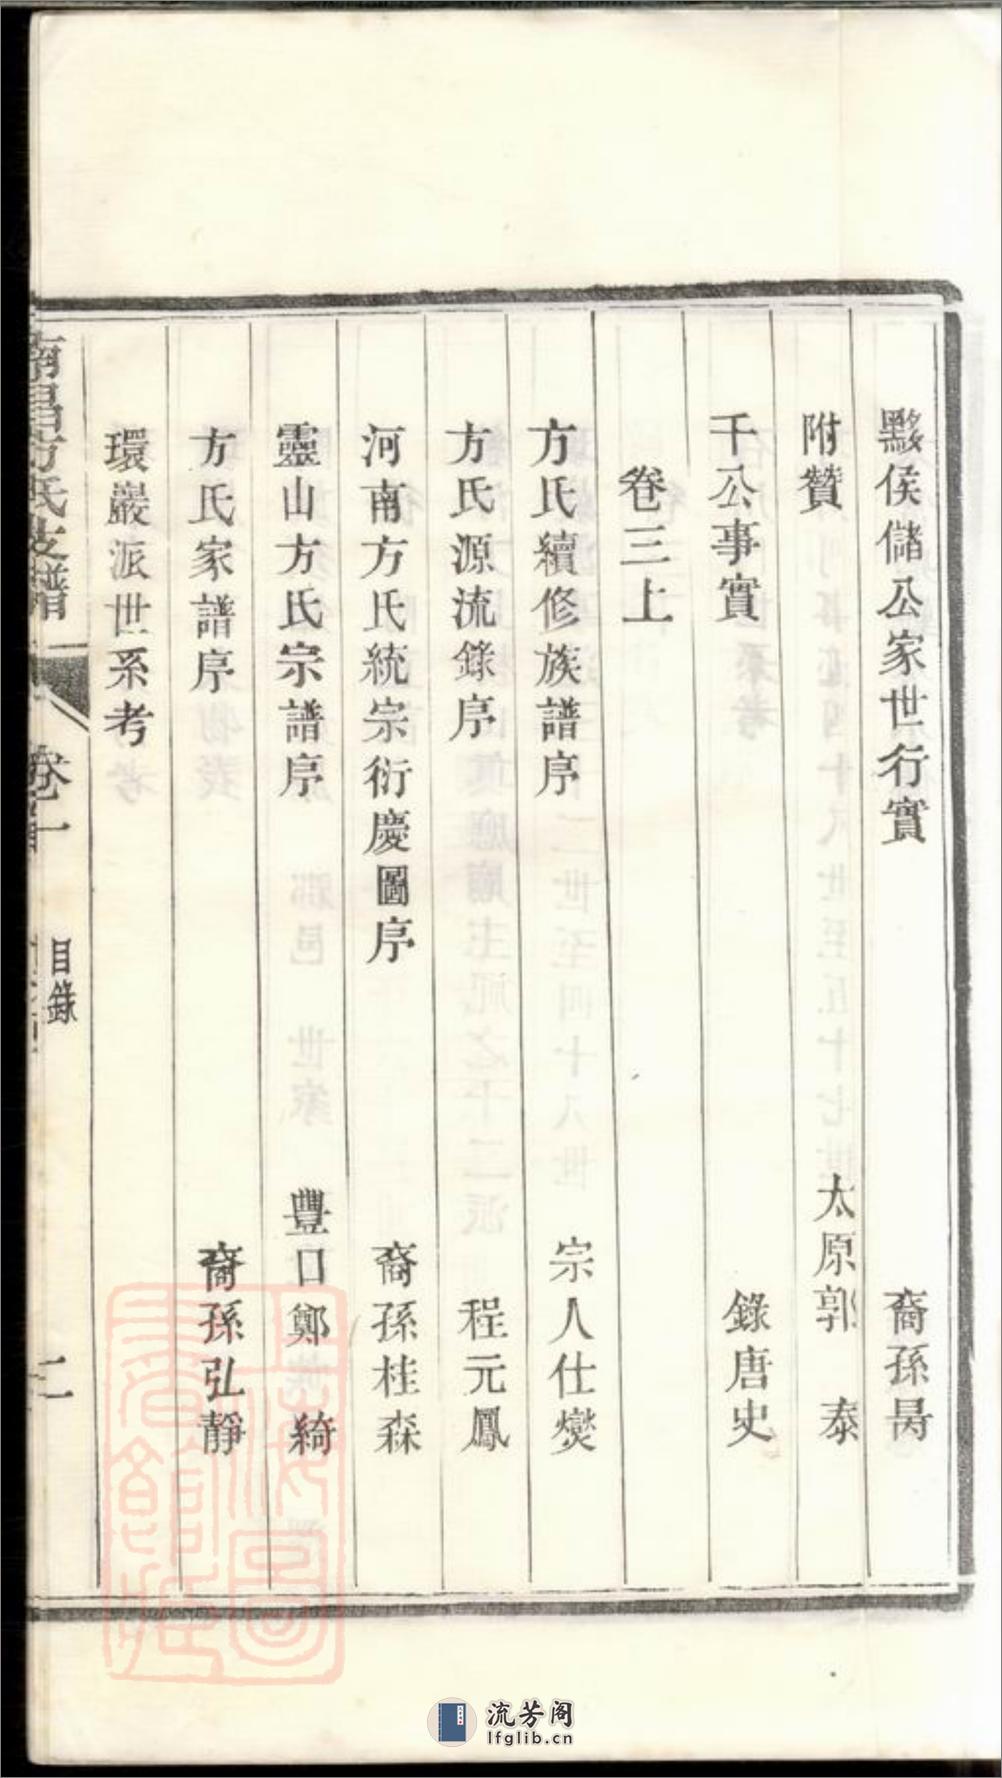 黟侯儲公家世行實 裔孫昺
附贊 太原郭 泰
千公事實 錄唐史
卷三上
方氏續修族譜序 宗人仕燮
方氏源流錄序 程元鳳
河南方氏統宗衍慶圖序 裔孫桂森
靈山方氏宗譜序 豐口鄭 綺
方氏家譜序 裔孫弘靜
環巖派世系考
南昌方氏支譜 卷首一 目錄 二
流芳阁
lfglib.cn